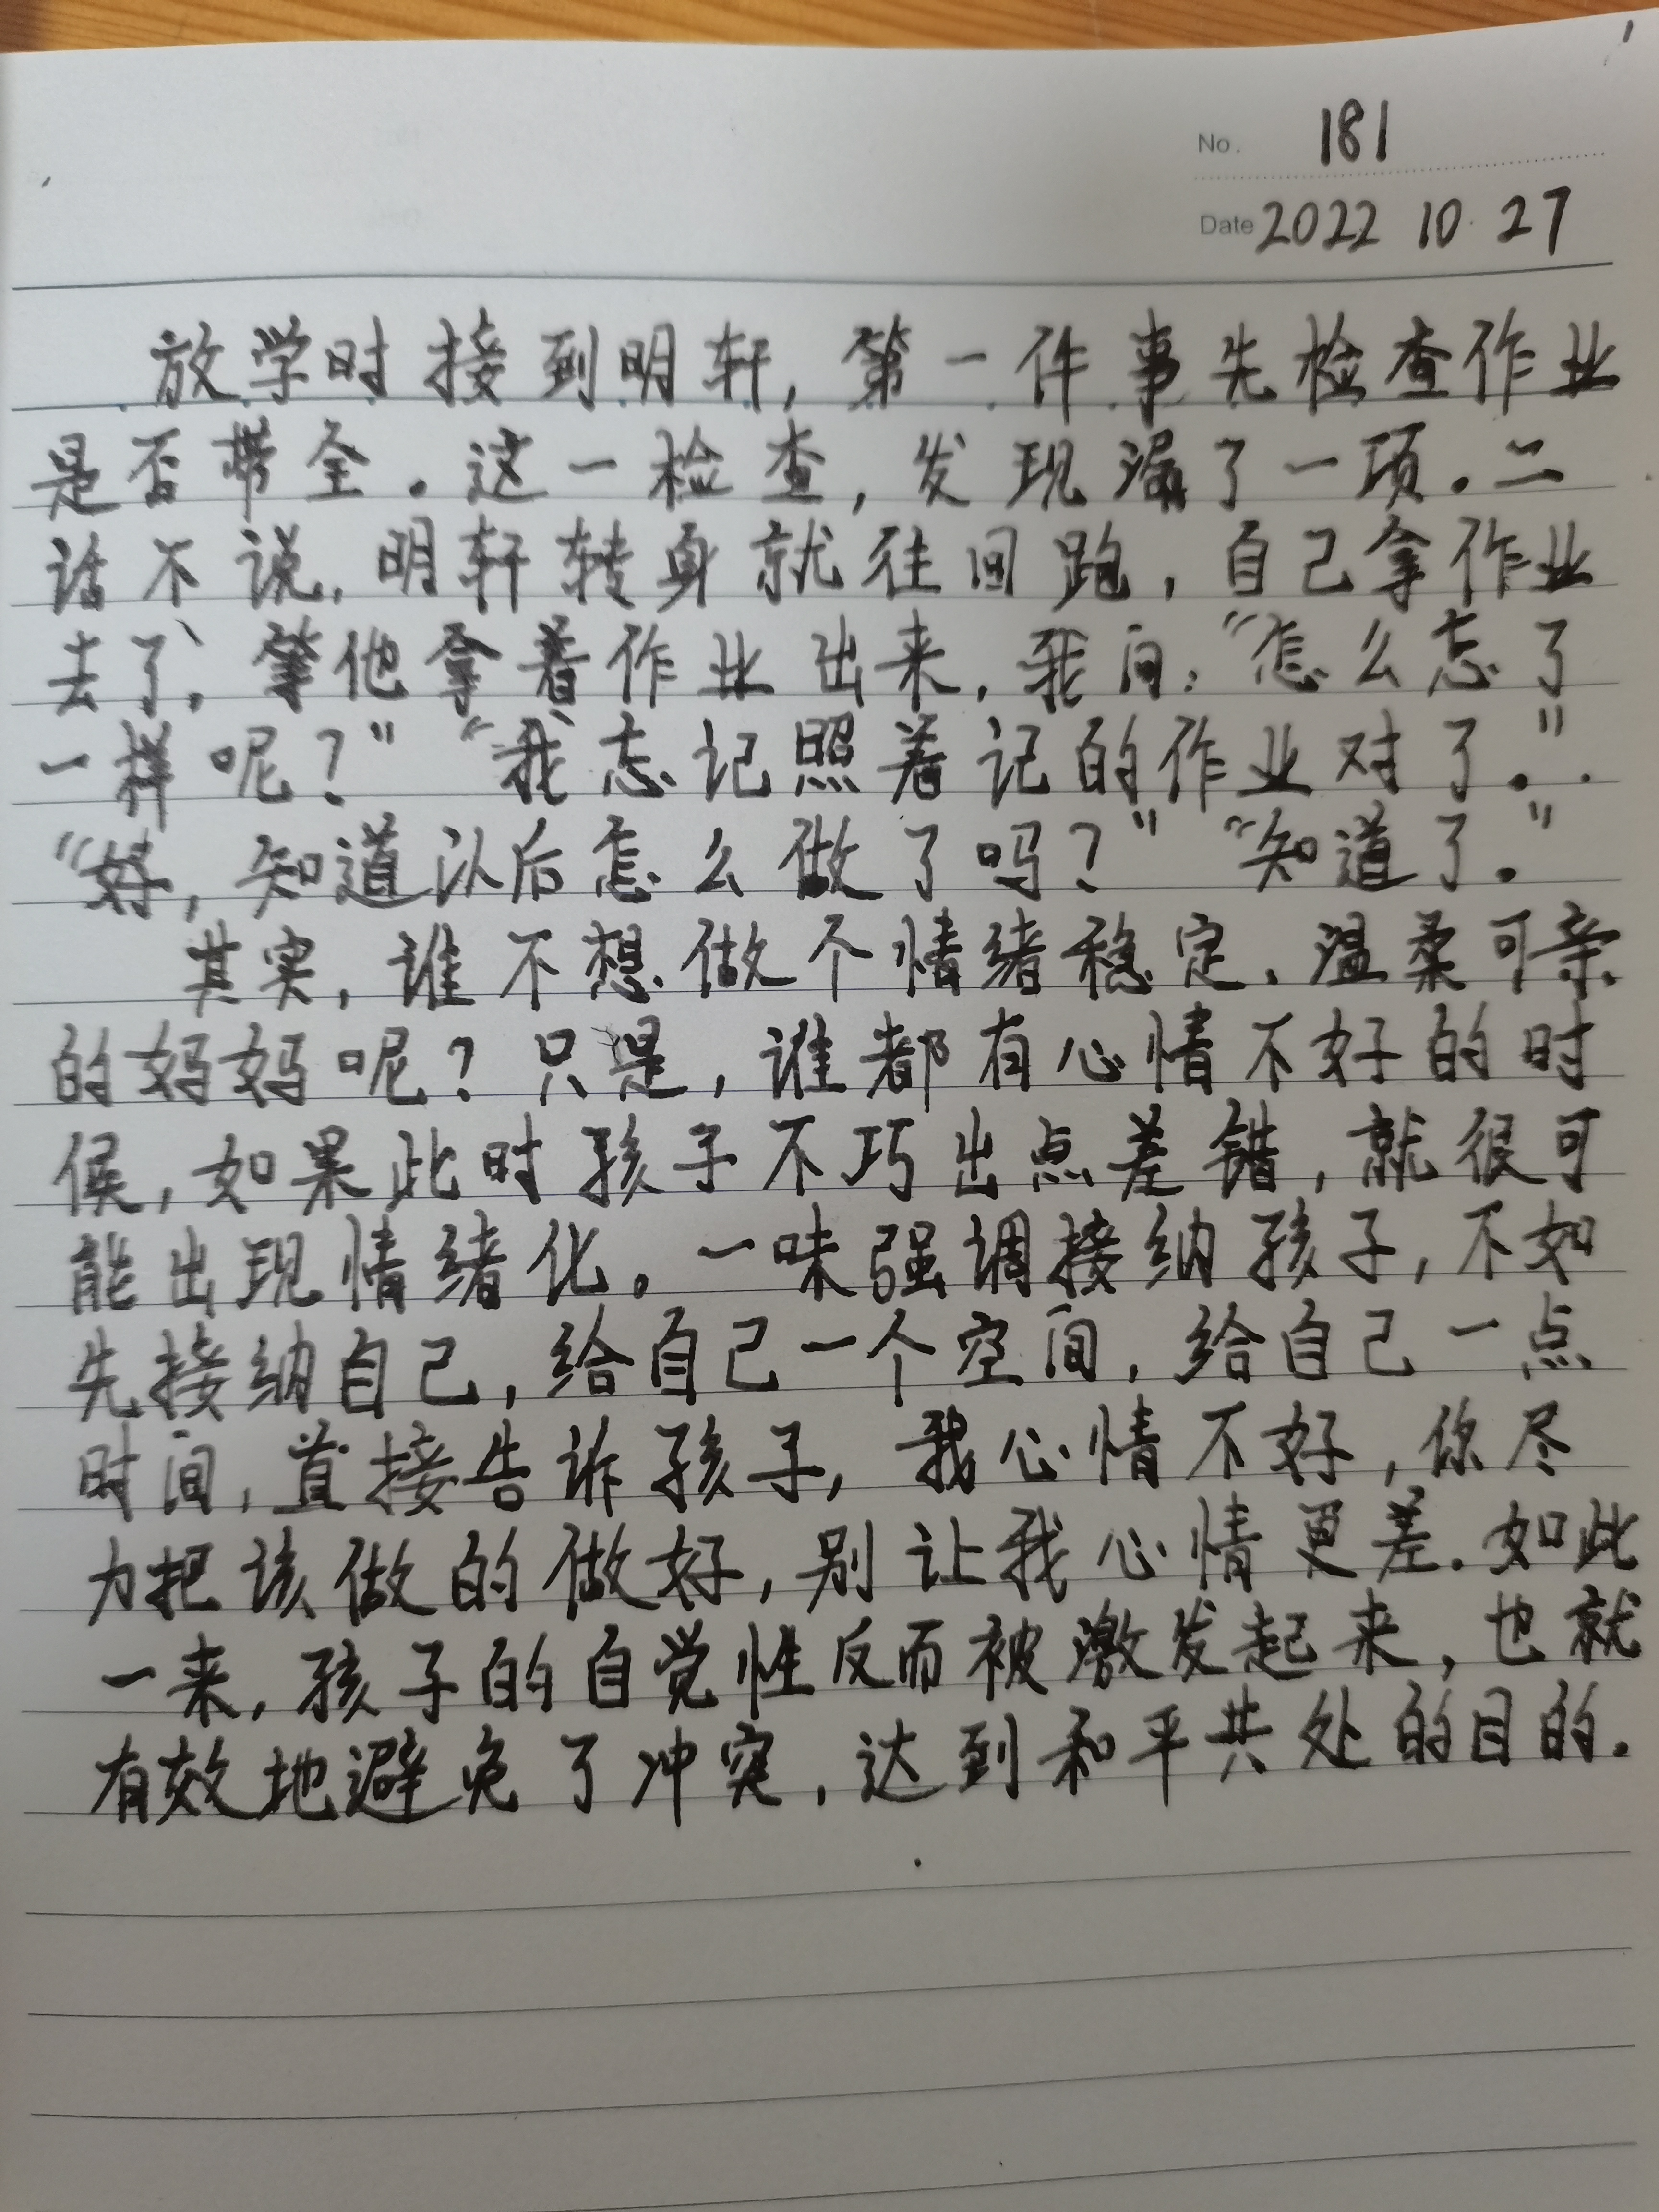 No. 181
Date 2022 10 27
放学时接到明轩,第一件事先检查作业
是否带全。这一检查,发现漏了一项。二
话不说,明轩转身就往回跑,自己拿作业
去了,等他拿着作业出来,我问:“怎么忘了
一样呢?”“我忘记照着记的作业对了。”
“好,知道以后怎么做了吗?”“知道了。”
其实,谁不想做个情绪稳定、温柔可亲
的妈妈呢?只是,谁都有心情不好的时
候,如果此时孩子不巧出点差错,就很可
能出现情绪化。一味强调接纳孩子,不如
先接纳自己,给自己一个空间,给自己一点
时间,直接告诉孩子,我心情不好,你尽
力把该做的做好,别让我心情更差.如此
一来,孩子的自觉性反而被激发起来,也就
有效地避免了冲突,达到和平共处的目的.